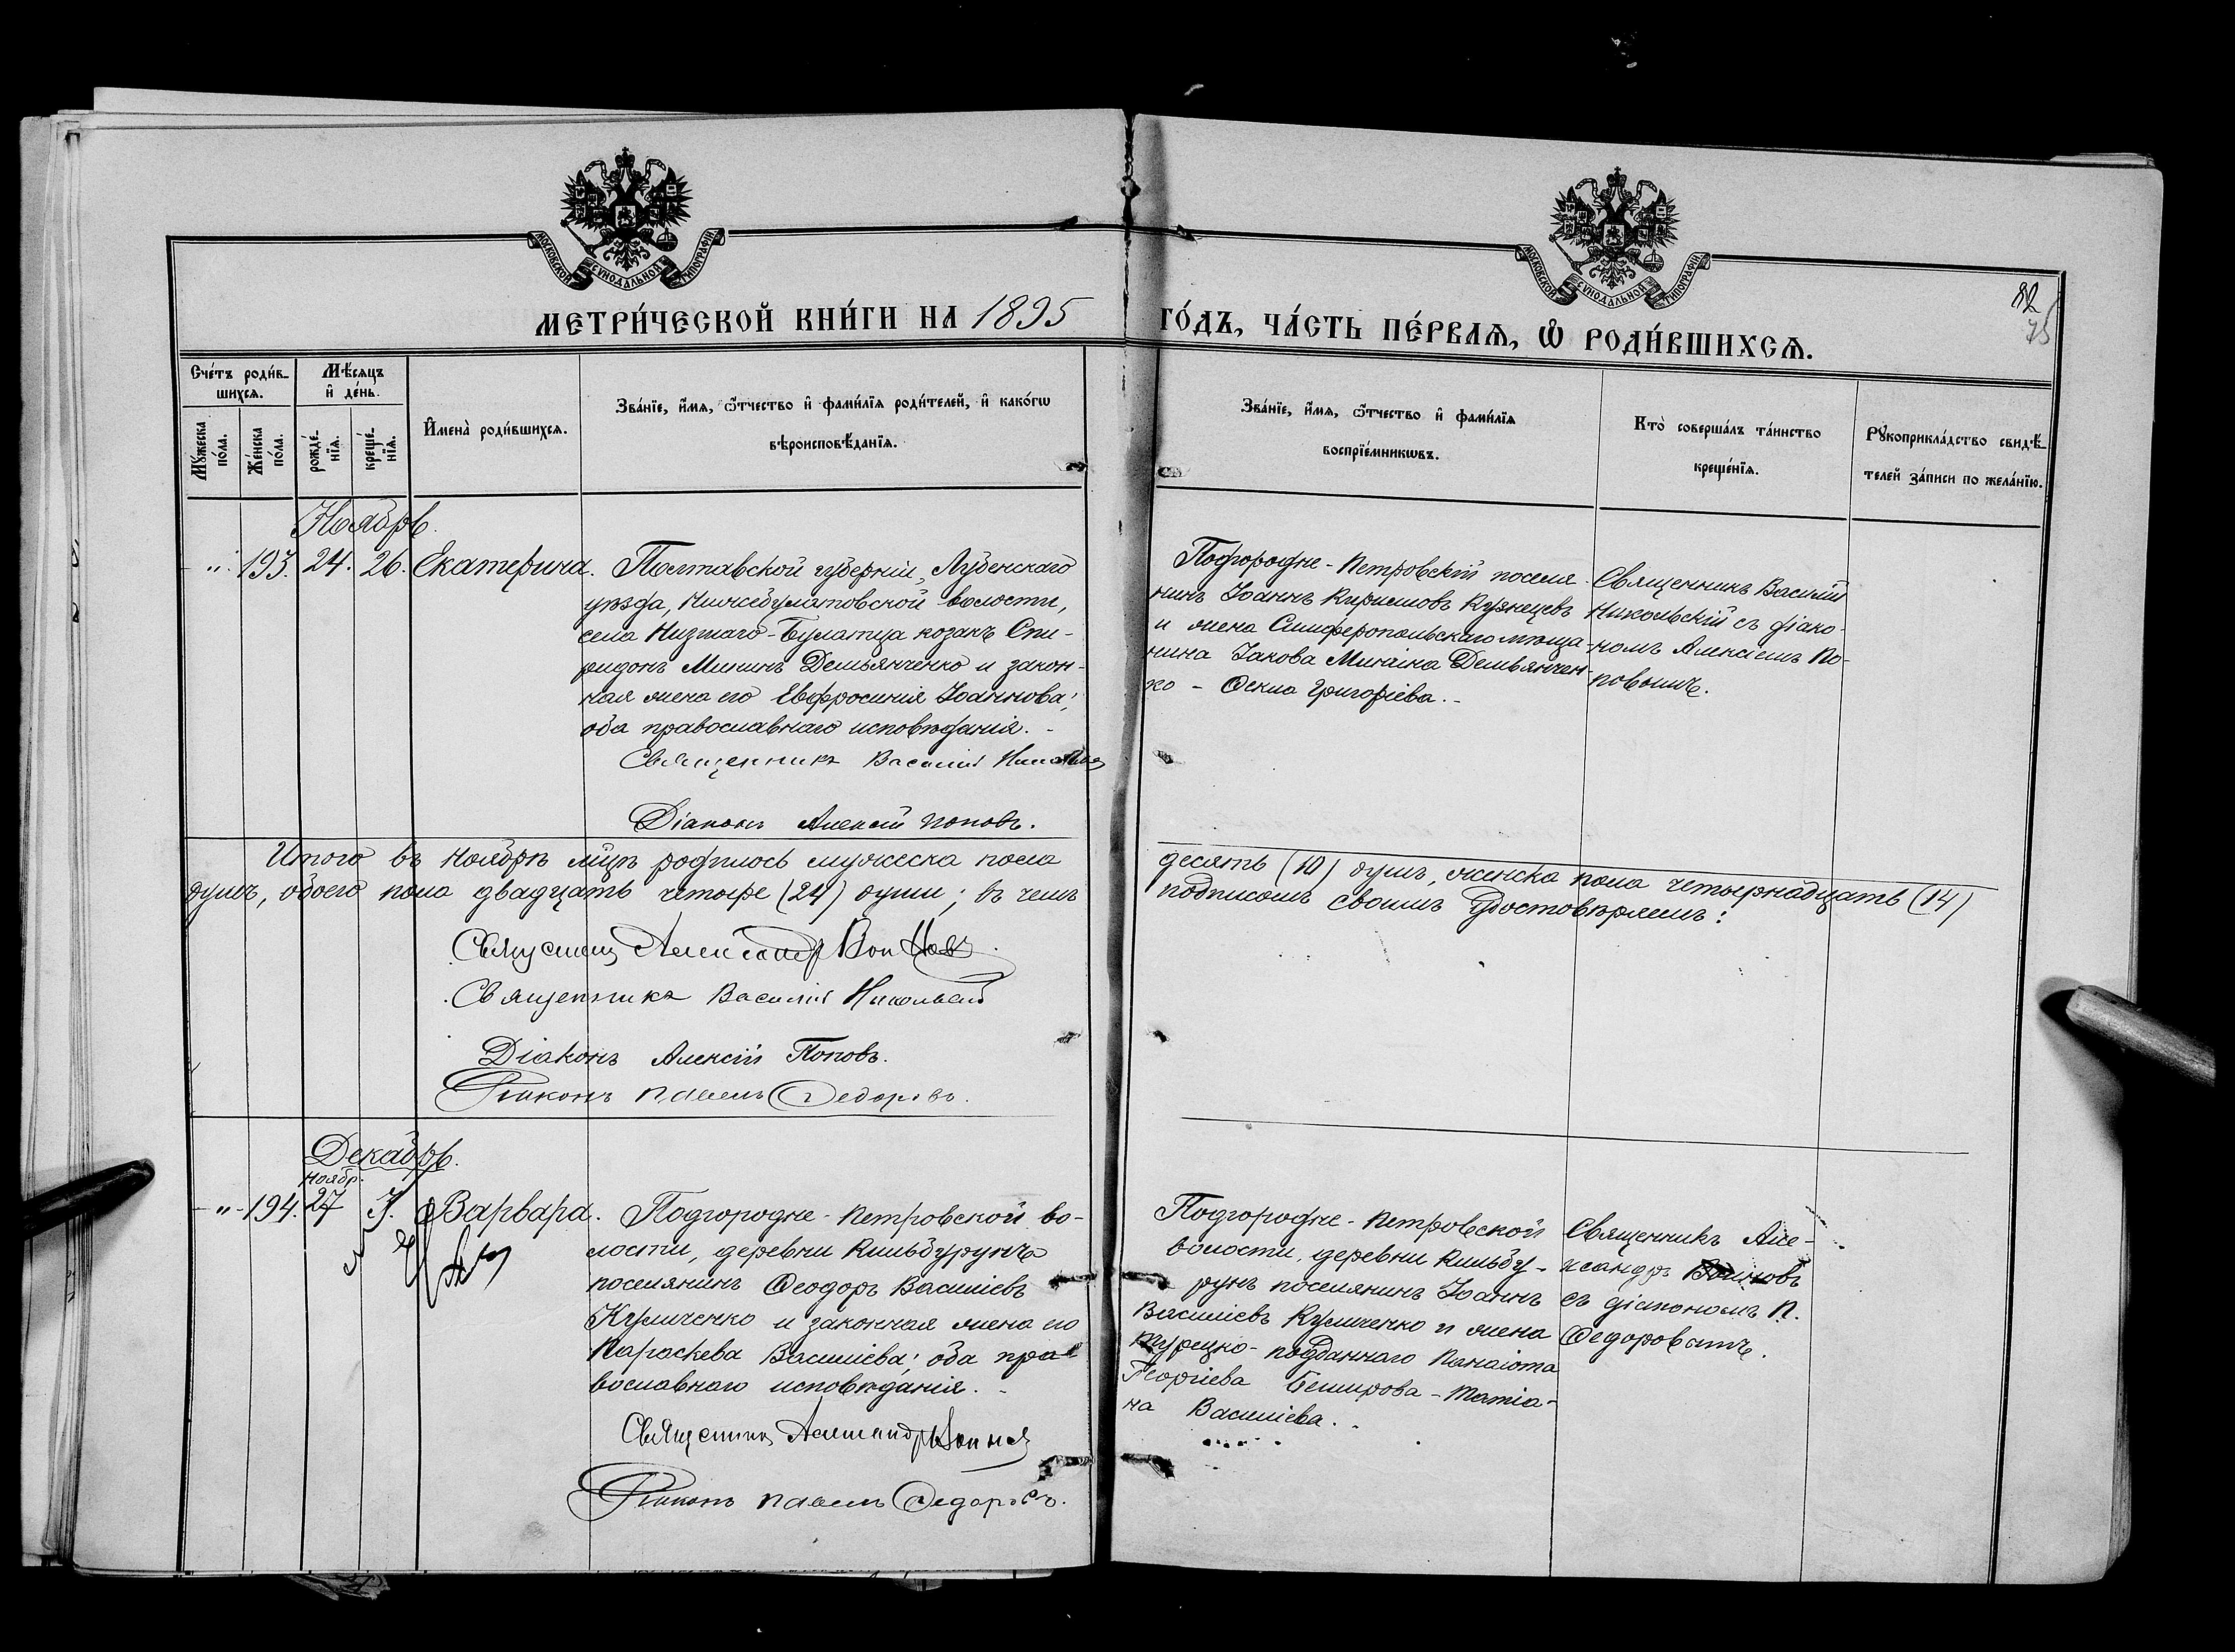 МОСКОВСКОЙ СѴНОДАЛЬНОЙ ТИПОГРАФІИ
МОСКОВСКОЙ СѴНОДАЛЬНОЙ ТИПОГРАФІИ
82
75
МЕТРИ́ЧЕСКОЙ КНИ́ГИ НА 1895 ГО́ДЪ, ЧА́СТЬ ПЕ́РВАѦ, Ѡ҆ РОДИ́ВШИХСѦ.
Сче́тъ роди́в-
шихсѧ.
Мѣ́сѧцъ
и҆ де́нь.
Мꙋ́жеска
по́ла.
Же́нска
по́ла.
рожде́-
нїѧ.
креще́-
нїѧ.
И҆мена̀ роди́вшихсѧ.
Зва́нїе, и҆́мѧ, ѻ҆́тчество и҆ фами́лїѧ роди́телей, и҆ како́гѡ
вѣроисповѣ́данїѧ.
Зва́нїе, и҆́мѧ, ѻ҆́тчество и҆ фами́лїѧ
воспрїе́мникѡвъ.
Кто̀ соверша́лъ та́инство
креще́нїѧ.
Рꙋкоприкла́дство свидѣ́-
телей за́писи по жела́нїю.
Ноябрь.
„ 193. 24. 26. Екатерина.
Полтавской губерніи, Лубенскаго
уѣзда, Нижебулатовской волости,
села Низшаго-Булатца козакъ Спи-
ридонъ Мининъ Демьянченко и закон-
ная жена его Евфросинія Іоаннова;
оба православнаго исповѣданія. -
Священникъ Василій
Діаконъ Алексій Поповъ.
Подгородне-Петровскій поселя-
нинъ Іоаннъ Кирилловъ Кузнецевъ
и жена Симферопольскаго мѣща-
нина Іакова Минаина Демьянчен-
ко - Ѳекла Григоріева. -
Священникъ Василій
Никольскій съ діако-
номъ Алексіемъ По-
повымъ.
Итого въ Ноябрѣ мцѣ родилось мужеска пола десять (10) душъ, женска пола четырнадцать (14)
душъ, обоего пола двадцать четыре (24) души; въ чемъ подписомъ своимъ удостовѣряемъ:
Священникъ Александръ Воиновъ
Священникъ Василій Никольскій
Діаконъ Алексій Поповъ.
Діаконъ Павелъ Ѳедоровъ.
Декабрь.
Ноябр.
- „ - 194. 27 3. Варвара.
Подгородне-Петровской во-
лости, деревни Кильбурунъ
поселянинъ Ѳеодоръ Василіевъ
Куличенко и законная жена его
Параскева Василіева; оба пра-
вославнаго исповѣданія. -
Священникъ Александръ Воиновъ
Діаконъ Павелъ Ѳедоровъ.
Подгородне-Петровской
волости, деревни Кильбу-
рунъ поселянинъ Іоаннъ
Василіевъ Куличенко и жена
турецко-подданнаго Панаіота
Георгіева Бемирова - Татіа-
на Василіева.
Священникъ Але-
ксандръ Воиновъ
съ діакономъ П.
Ѳедоровымъ.